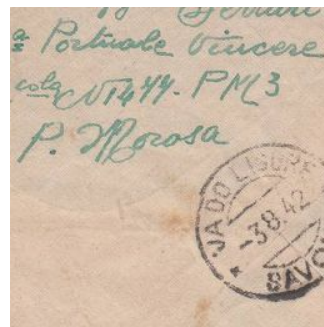 Ferrari
a Portuale Vincere
cola N 1444 - P M 3
P. Morosa
VADO LIGURE
-3.8.42
* SAVO